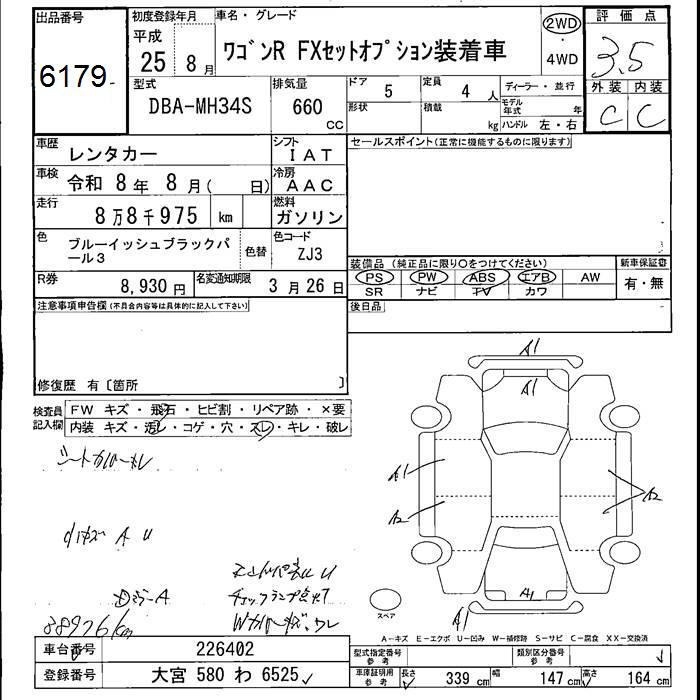 出品番号
6179
初度登録年月
平成
25 8月
車名・グレード
ワゴンR FXセットオプション装着車
2WD
・
4WD
評価点
3.5
外装 内装
C C
型式
DBA-MH34S
排気量
660
cc
ドア 5
定員 4 人
形状
積載 kg
ディーラー・並行
モデル年式 年
ハンドル 左・右
車歴 レンタカー
シフト IAT
車検 令和 8年 8月( 日)
冷房 AAC
走行 8万8千975 km
燃料 ガソリン
色 ブルーイッシュブラックパール3
色替
色コード ZJ3
R券 8,930円
名変通知期限 3月26日
セールスポイント(正常に機能するものに限ります)
装備品 (純正品に限り○をつけてください)
PS PW ABS エアB AW
SR ナビ TV カワ
新車保証書
有・無
後日品
注意事項申告欄(不具合内容等は具体的に記入して下さい)
修復歴 有〔箇所 〕
検査員記入欄
FW キズ・飛石・ヒビ割・リペア跡・×要
内装 キズ・汚レ・コゲ・穴・スレ・キレ・破レ
A1
A1
A1
A2
A2
A1
A1
スペア
A U
A
U
88976km
A-キズ E-エクボ U-凹み W-補修跡 S-サビ C-腐食 XX-交換済
車台番号 226402
登録番号 大宮 580 わ 6525
型式指定番号 参考
類別区分番号 参考
車庫証明用 参考
長さ 339 cm 幅 147 cm 高さ 164 cm